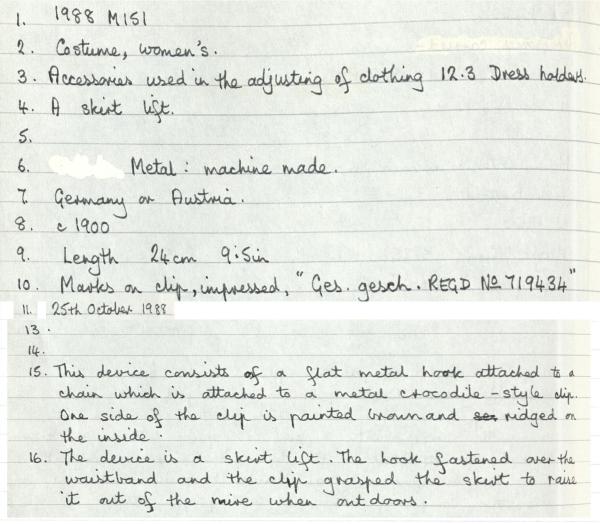 1. 1988 M151
2. Costume, women's.
3. Accessories used in the adjusting of clothing 12.3 Dress holders.
4. A skirt lift.
5.
6. Metal : machine made.
7. Germany or Austria.
8. c 1900
9. Length 24cm 9:5in
10. Marks on clip, impressed, "Ges. gesch. REGD No 719434"
11. 25th October 1988
13.
14.
15. This device consists of a flat metal hook attached to a
chain which is attached to a metal crocodile-style clip.
One side of the clip is painted brown and ridged on
the inside.
16. The device is a skirt lift. The hook fastened over the
waistband and the clip grasped the skirt to raise
it out of the mire when outdoors.